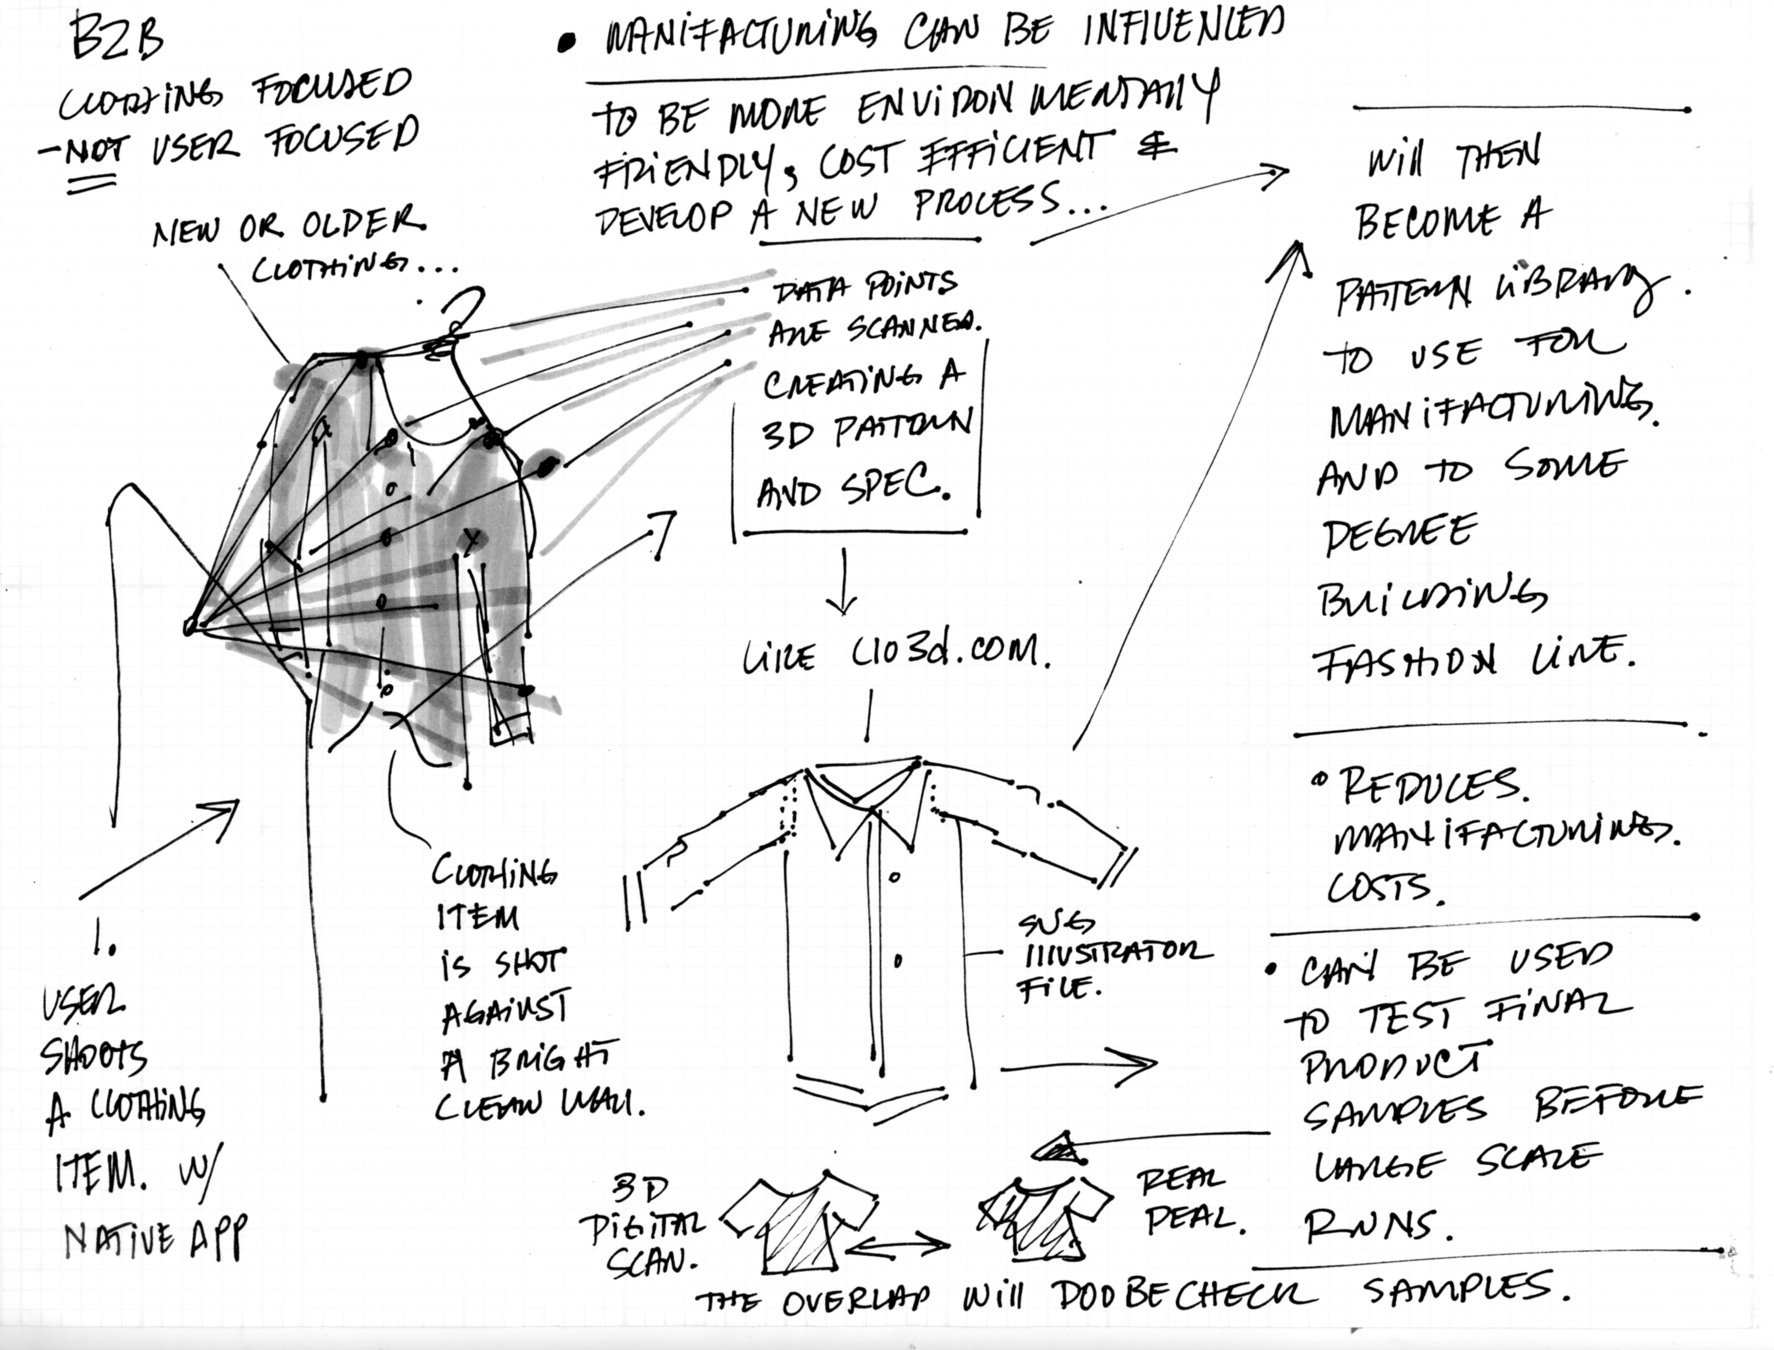 B2B
CLOTHING FOCUSED
- NOT USER FOCUSED
NEW OR OLDER
CLOTHING...
• MANIFACTURING CAN BE INFLUENCED
TO BE MORE ENVIRONMENTALLY
FRIENDLY, COST EFFICIENT &
DEVELOP A NEW PROCESS...
DATA POINTS
ARE SCANNED.
CREATING A
3D PATTERN
AND SPEC.
LIKE CLO3d.COM.
SVG
ILLUSTRATOR
FILE.
1.
USER
SHOOTS
A CLOTHING
ITEM. W/
NATIVE APP
CLOTHING
ITEM
IS SHOT
AGAINST
A BRIGHT
CLEAN WALL.
3D
DIGITAL
SCAN.
REAL
DEAL.
THE OVERLAP WILL DOOBECHECK SAMPLES.
WILL THEN
BECOME A
PATTERN LIBRARY.
TO USE FOR
MANIFACTURING.
AND TO SOME
DEGREE
BUILDING
FASHION LINE.
• REDUCES.
MANIFACTURING.
COSTS.
• CAN BE USED
TO TEST FINAL
PRODUCT
SAMPLES BEFORE
LARGE SCALE
RUNS.